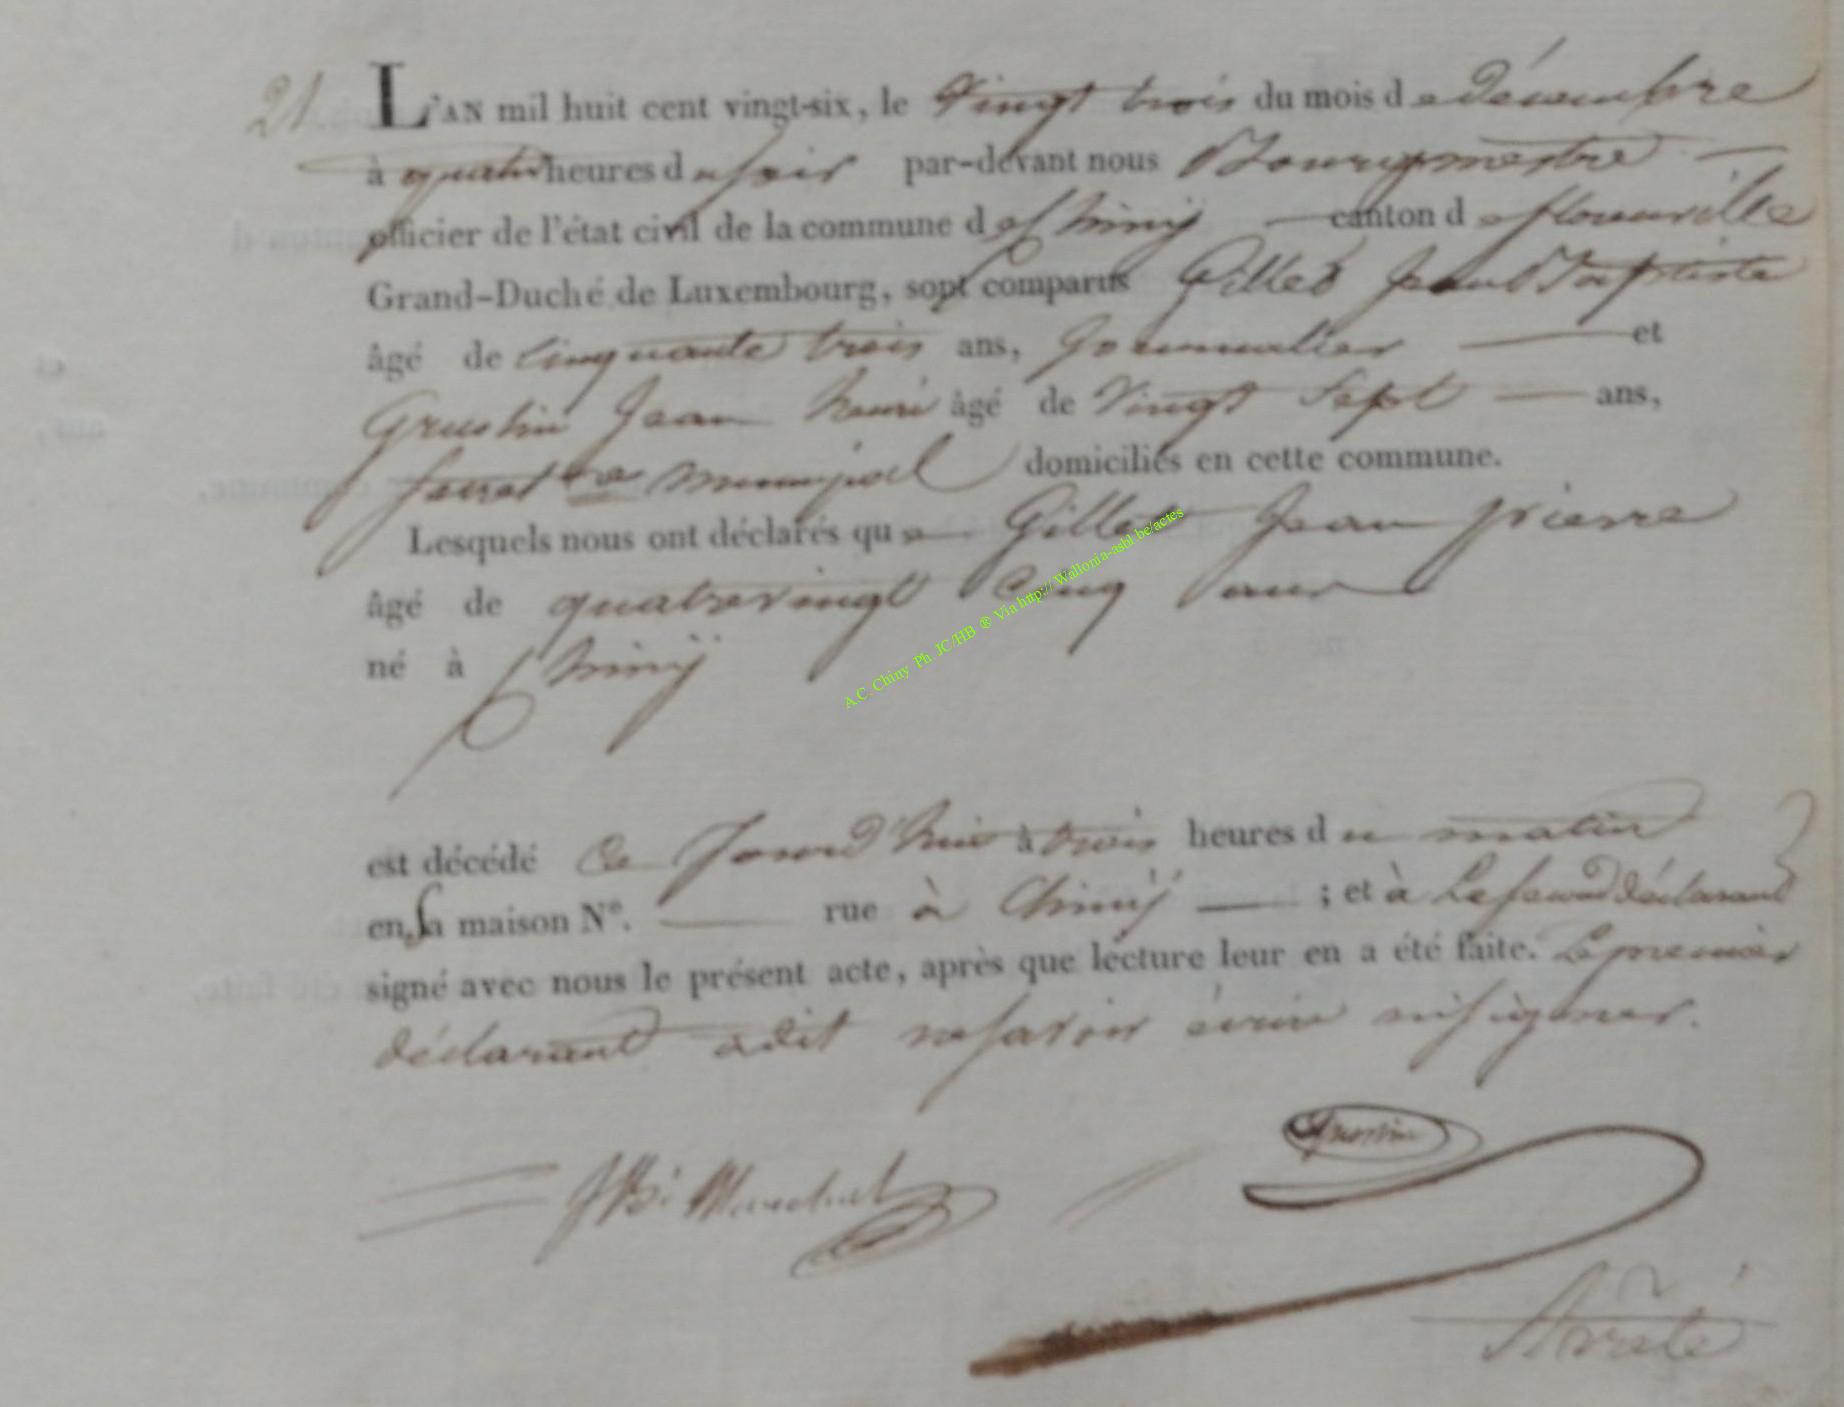 21. L'AN mil huit cent vingt-six, le Vingt trois du mois de décembre
à quatre heures du soir par-devant nous Bourgmestre
officier de l'état civil de la commune de Chiny canton de florenville
Grand-Duché de Luxembourg, sont comparus Gilles Jean Baptiste
âgé de Cinquante trois ans, Journalier et
Grustin Jean henri âgé de Vingt Sept ans,
municipal domiciliés en cette commune.
Lesquels nous ont déclarés que Gilles Jean pierre
âgé de quatrevingt Cinq ans
né à Chinÿ
est décédé Ce Jourd'hui à trois heures du matin
en sa maison N°. rue à Chinÿ ; et à Le second déclarant
signé avec nous le présent acte, après que lecture leur en a été faite. Le premier
déclarant a dit ne savoir écrire ni signer.
Grustin
Marechal
Arrêté
A.C. Chiny Ph. JC/HB ® Via http:// Wallonia-asbl be/actes